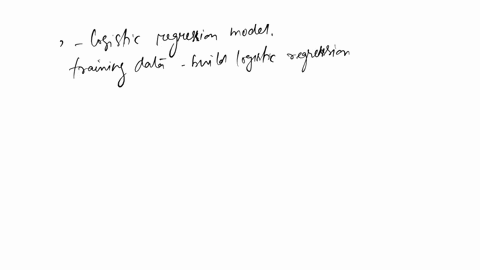 , - Logistic regression model.
training data - build logistic regression